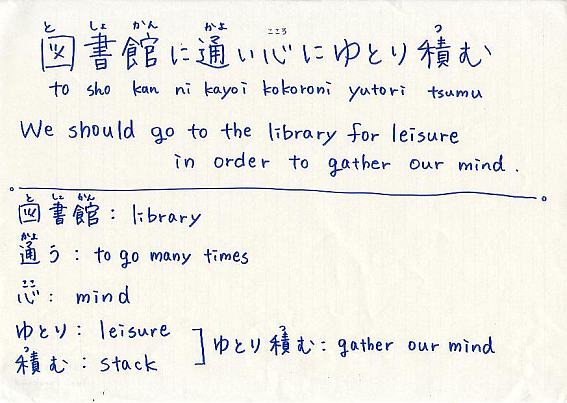 と しょ かん かよ こころ つ
図書館に通い心にゆとり積む
to sho kan ni kayoi kokoroni yutori tsumu
We should go to the library for leisure
in order to gather our mind.
と しょ かん
図書館: library
かよ
通う: to go many times
ここ
心: mind
ゆとり: leisure
つ
積む: stack
つ
ゆとり積む: gather our mind